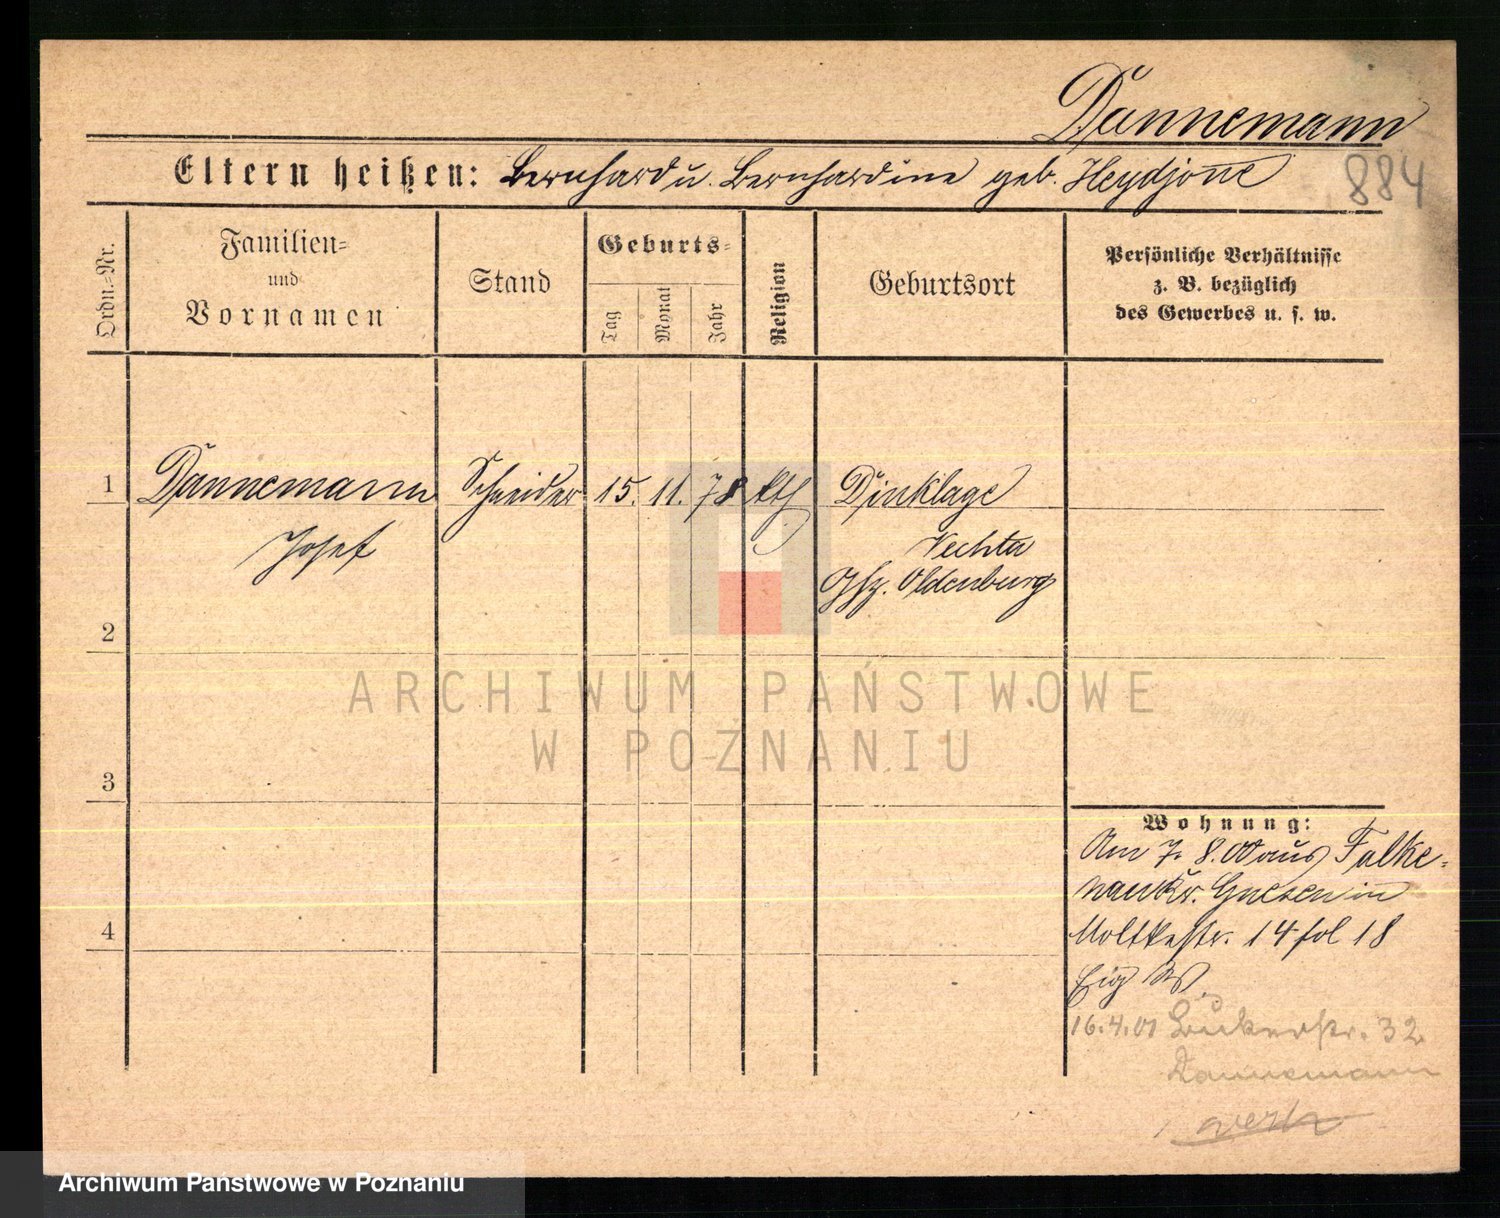 Dannemann
Eltern heißen: Bernhard u. Bernhardine geb. Heydjann
884
Ordn.-Nr.
Familien-
und
Vornamen
Stand
Geburts-
Tag
Monat
Jahr
Religion
Geburtsort
Persönliche Verhältnisse
z. B. bezüglich
des Gewerbes u. s. w.
1 Dannemann Schneider 15. 11. 78 kth Dinklage
Josef Vechta
Ghz. Oldenburg
2
ARCHIWUM PAŃSTWOWE
W POZNANIU
3
Wohnung:
Am 7. 8. 00 aus Falke-
nau Kr. Gnesen in
4
Moltkestr. 14 fol 18
Eig W
16.4.01 Bukerstr. 32
Dannemann
verh
Archiwum Państwowe w Poznaniu